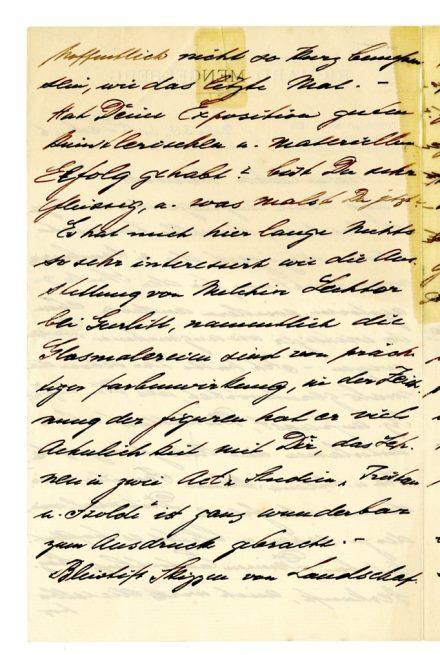 hoffentlich nicht so kurz bemessen
sein, wie das letzte Mal. –
Hat Deine Exposition guten
künstlerischen u. materiellen
Erfolg gehabt? bist Du sehr
fleissig, u. was malst Du jetzt?
Es hat mich hier lange Nichts
so sehr interessirt wie die Aus-
stellung von Melchior Lechter
bei Gurlitt, namentlich die
Glasmalereien sind von präch-
tiger Farbenwirkung, in der Zeich-
nung der Figuren hat er viel
Aehnlichkeit mit Dir, das Seh-
nen in zwei Act-Studien „Tristan
u. Isolde" ist ganz wunderbar
zum Ausdruck gebracht. –
Bleistift Skizzen von Landschaf-